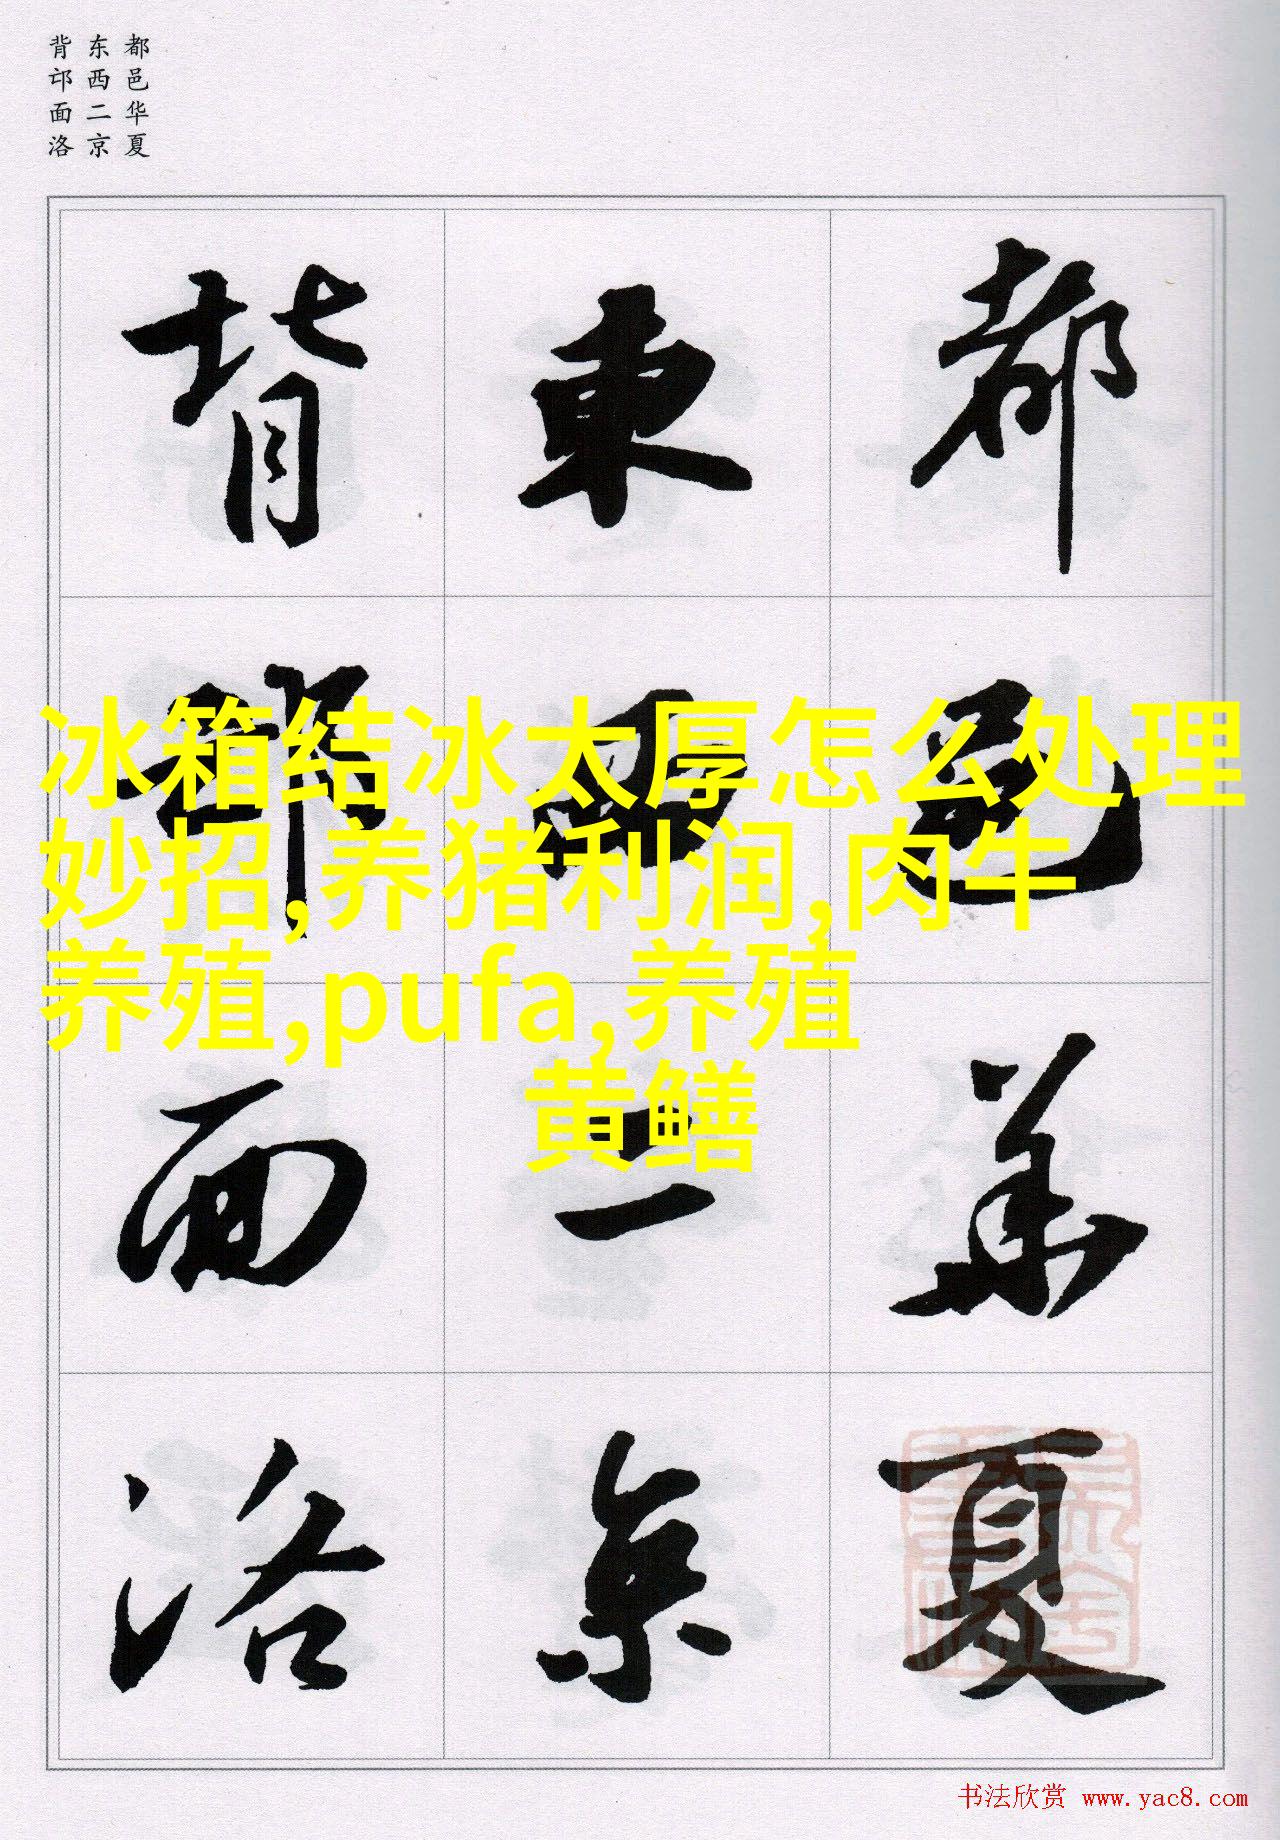 都邑华夏
东西二京
背邙面洛
都邑華夏
東西二京
背邙面洛
冰箱结冰太厚怎么处理
妙招,养猪利润,肉牛
养殖,pufa,养殖
黄鳝
书法欣赏 www.yac8.com